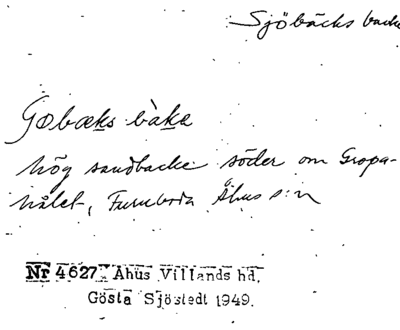 Sjöbäcks backe
Gøbæks bàka
hög sandbacke söder om Gropa-
hålet, Furuboda Åhus s:n
Nr 4627 Åhus Villands hd.
Gösta Sjöstedt 1949.